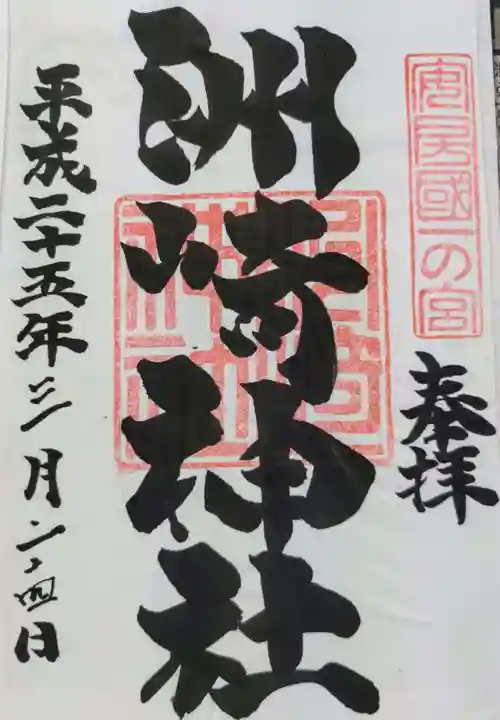 安房國一の宮
奉拝
洲崎神社
平成二十五年三月二十四日